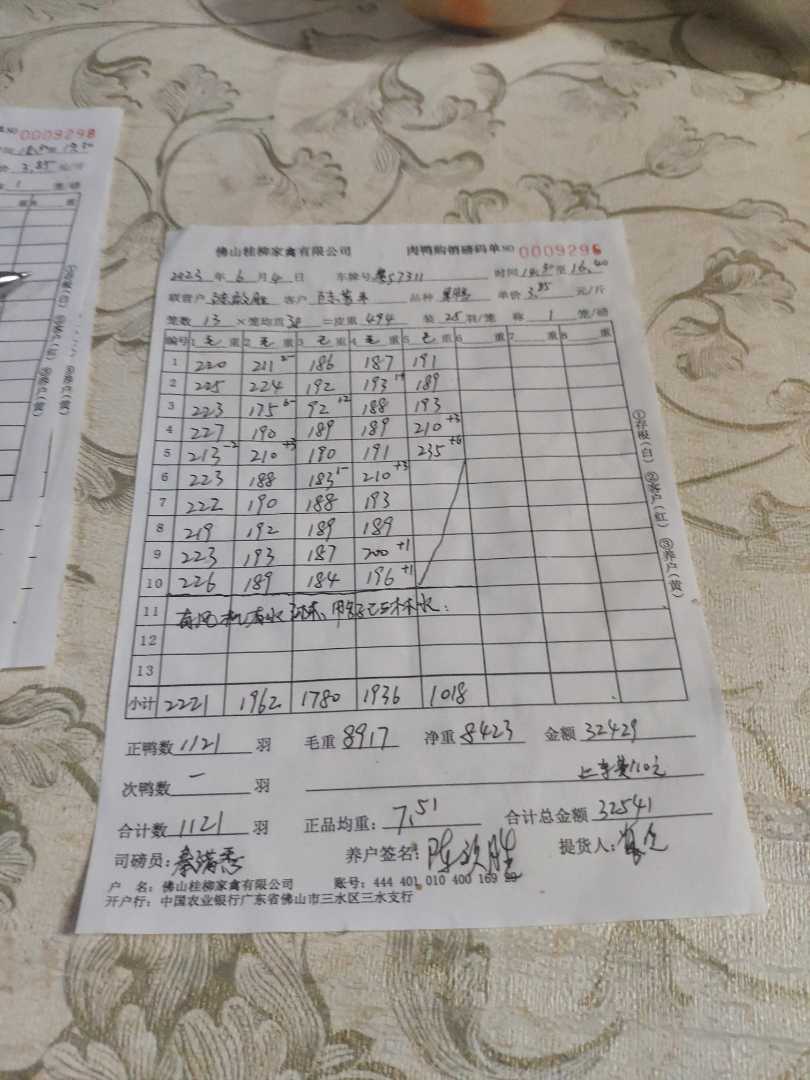 NO 0009298
3.85 元/斤
1 笼/磅
佛山桂柳家禽有限公司 肉鸭购销磅码单 NO 0009296
2023 年 6 月 4 日 车牌号 粤57311 时间 至 16:40
联营户 客户 品种 单价 3.85 元/斤
笼数 13 ×笼均重 38 =皮重 494 装 25 羽/笼 称 1 笼/磅
编号 1 毛 重 2 毛 重 3 毛 重 4 毛 重 5 毛 重 6 重 7 重 8 重
1 220 211 2- 186 187 191
2 225 224 192 193 189
3 223 175 6- 92 +2 188 193
4 227 190 189 189 210 +3
5 213 -2 210 +3 190 191 235 +6
6 223 188 183 1- 210 +3
7 222 190 188 193
8 219 192 189 189
9 223 193 187 200 +1
10 226 189 184 196 +1
11
12
13
小计 2221 1962 1780 1936 1018
正鸭数 1121 羽 毛重 8917 净重 8423 金额 32429
次鸭数 一 羽 上车费110元
合计数 1121 羽 正品均重: 7.51 合计总金额 32541
司磅员: 秦满秀 养户签名: 提货人:
户 名: 佛山桂柳家禽有限公司 账号: 444 401 010 400 169
开户行: 中国农业银行广东省佛山市三水区三水支行
①存根(白) ②客户(红) ③养户(黄)